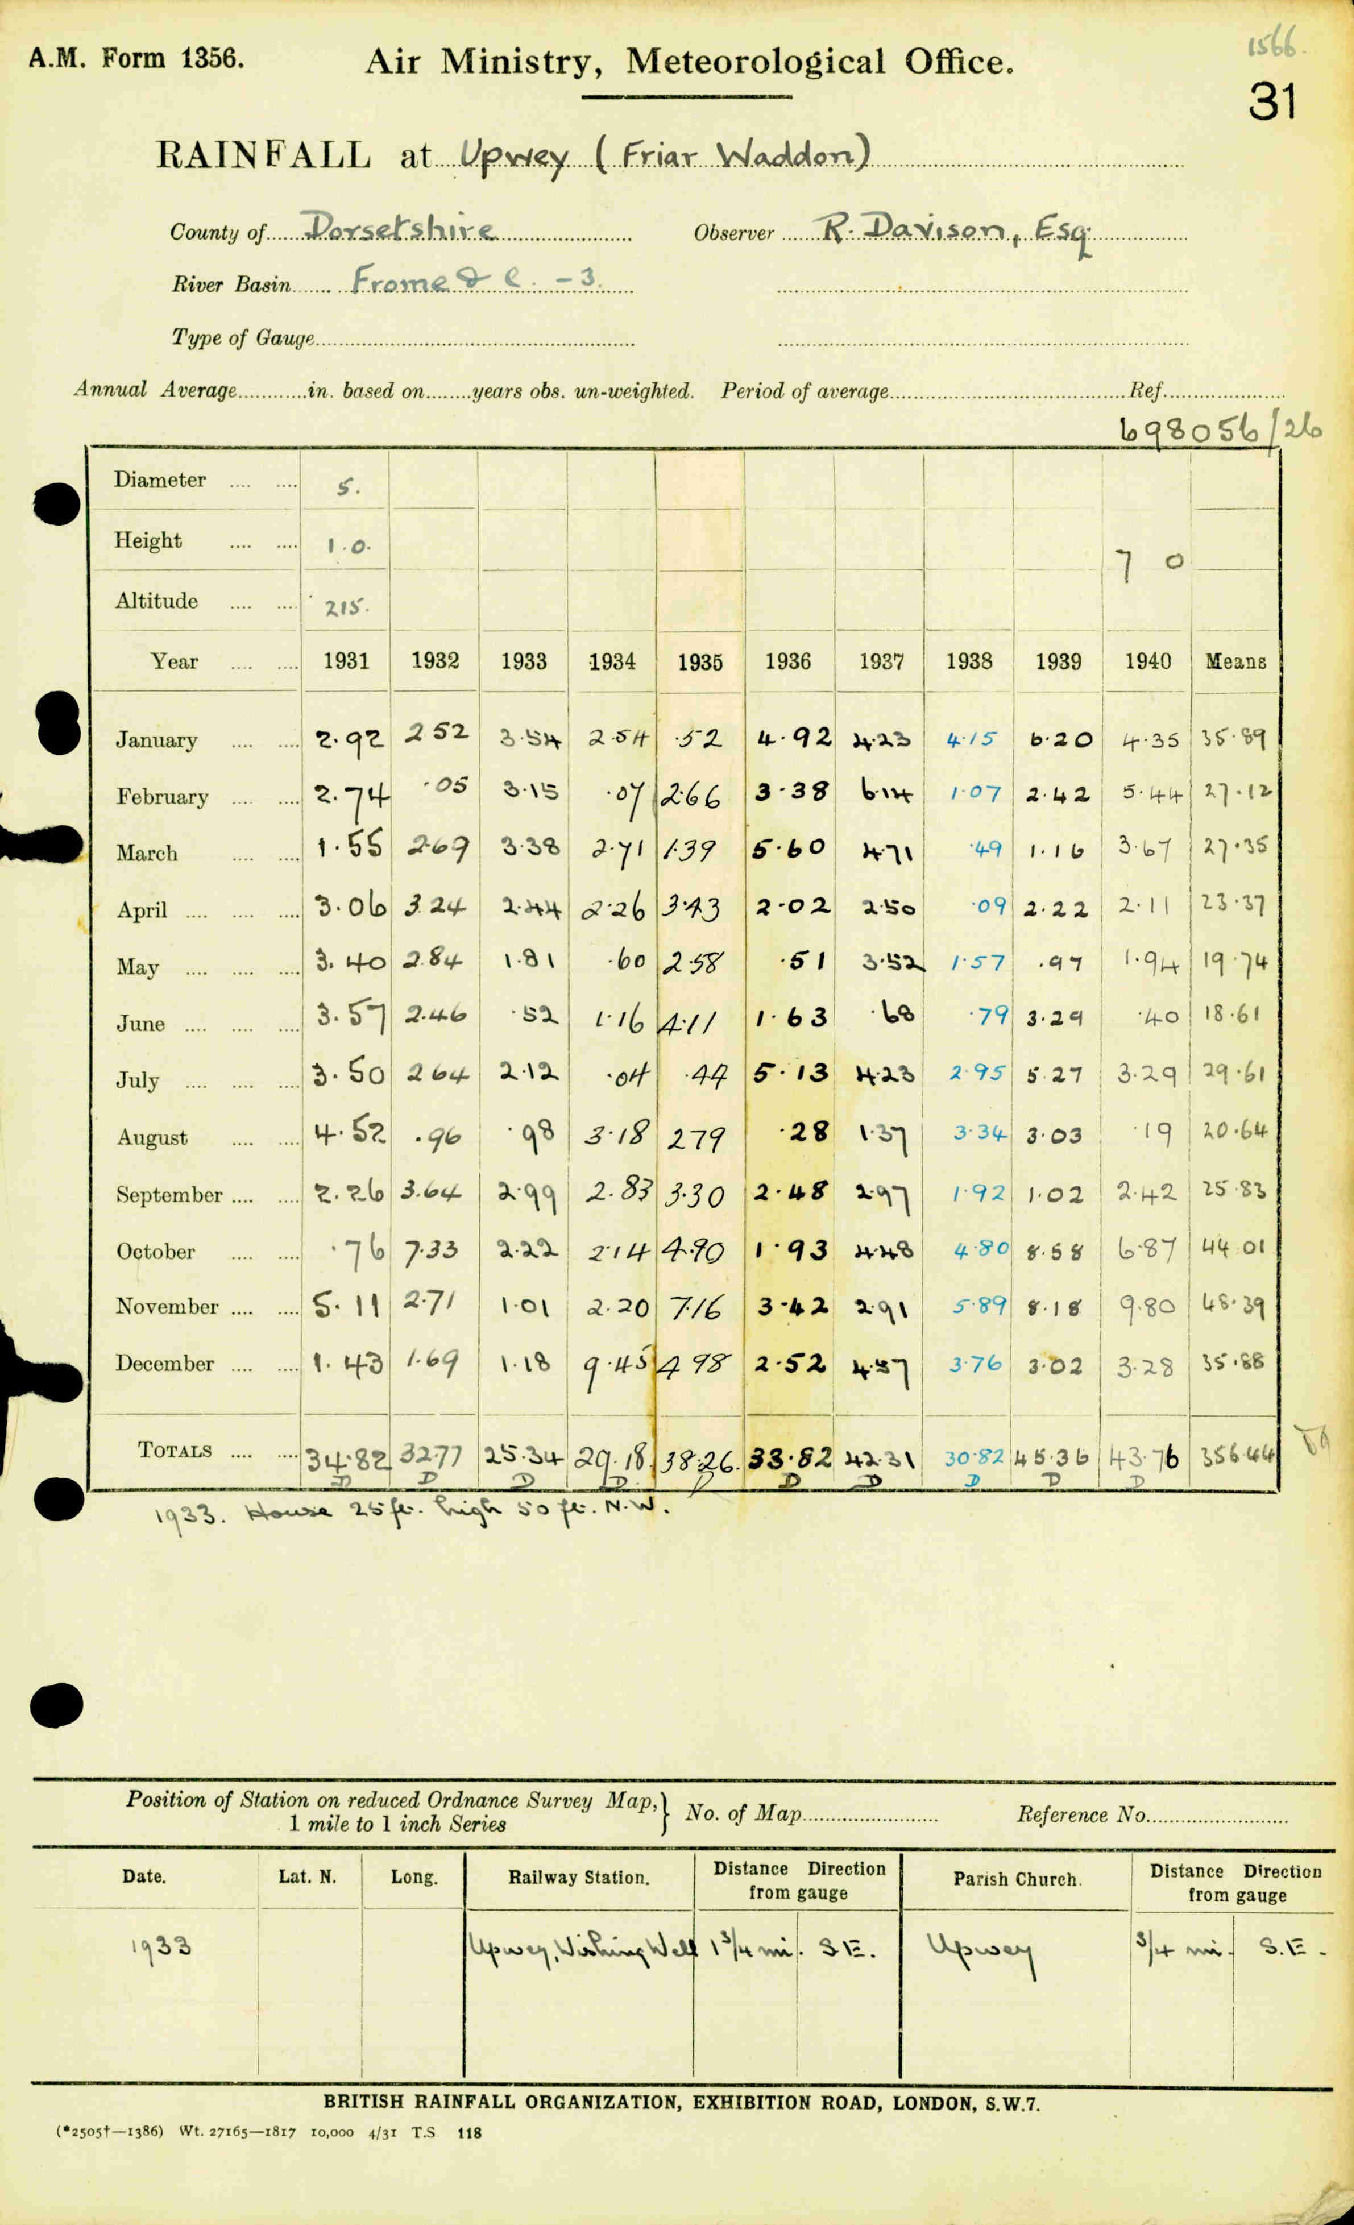 1566.
A.M. Form 1356. Air Ministry, Meteorological Office.
31
RAINFALL at Upwey (Friar Waddon)
County of Dorsetshire Observer R. Davison, Esq.
River Basin Frome &c. -3.
Type of Gauge
Annual Average in. based on years obs. un-weighted. Period of average Ref.
698056/26
Diameter 5.
Height 1.0. 7 0
Altitude 215.
Year 1931 1932 1933 1934 1935 1936 1937 1938 1939 1940 Means
January 2.92 2.52 3.54 2.54 .52 4.92 4.23 4.15 6.20 4.35 35.89
February 2.74 .05 3.15 .07 2.66 3.38 6.14 1.07 2.42 5.44 27.12
March 1.55 2.69 3.38 2.71 1.39 5.60 4.71 .49 1.16 3.67 27.35
April 3.06 3.24 2.44 2.26 3.43 2.02 2.50 .09 2.22 2.11 23.37
May 3.40 2.84 1.81 .60 2.58 .51 3.52 1.57 .97 1.94 19.74
June 3.57 2.46 .52 1.16 4.11 1.63 .68 .79 3.29 .40 18.61
July 3.50 2.64 2.12 .04 .44 5.13 4.23 2.95 5.27 3.29 29.61
August 4.52 .96 .98 3.18 2.79 .28 1.37 3.34 3.03 .19 20.64
September 2.26 3.64 2.99 2.83 3.30 2.48 2.97 1.92 1.02 2.42 25.83
October .76 7.33 2.22 2.14 4.90 1.93 4.48 4.80 8.58 6.87 44.01
November 5.11 2.71 1.01 2.20 7.16 3.42 2.91 5.89 8.18 9.80 48.39
December 1.43 1.69 1.18 9.45 4.98 2.52 4.57 3.76 3.02 3.28 35.88
TOTALS 34.82 32.77 25.34 29.18 38.26 33.82 42.31 30.82 45.36 43.76 356.44
D D D D D D D D D D
1933. House 25 ft. high 50 ft. N.W.
Position of Station on reduced Ordnance Survey Map, } No. of Map Reference No.
1 mile to 1 inch Series
Date. Lat. N. Long. Railway Station. Distance Direction from gauge Parish Church. Distance Direction from gauge
1933 Upwey, Wishing Well 1 3/4 mi. S.E. Upwey 3/4 mi. S.E.
BRITISH RAINFALL ORGANIZATION, EXHIBITION ROAD, LONDON, S.W.7.
(*2505†—1386) Wt. 27165—1817 10,000 4/31 T.S 118